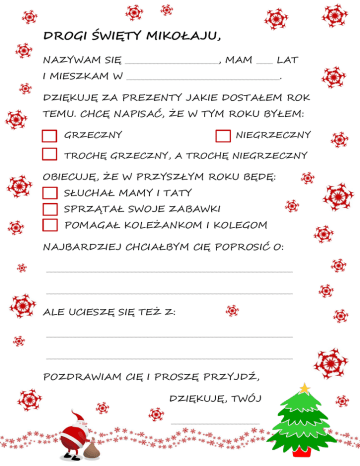 DROGI ŚWIĘTY MIKOŁAJU,
NAZYWAM SIĘ ____________________, MAM ___ LAT
I MIESZKAM W ______________________________.
DZIĘKUJĘ ZA PREZENTY JAKIE DOSTAŁEM ROK
TEMU. CHCĘ NAPISAĆ, ŻE W TYM ROKU BYŁEM:
GRZECZNY NIEGRZECZNY
TROCHĘ GRZECZNY, A TROCHĘ NIEGRZECZNY
OBIECUJĘ, ŻE W PRZYSZŁYM ROKU BĘDĘ:
SŁUCHAŁ MAMY I TATY
SPRZĄTAŁ SWOJE ZABAWKI
POMAGAŁ KOLEŻANKOM I KOLEGOM
NAJBARDZIEJ CHCIAŁBYM CIĘ POPROSIĆ O:
ALE UCIESZĘ SIĘ TEŻ Z:
POZDRAWIAM CIĘ I PROSZĘ PRZYJDŹ,
DZIĘKUJĘ, TWÓJ